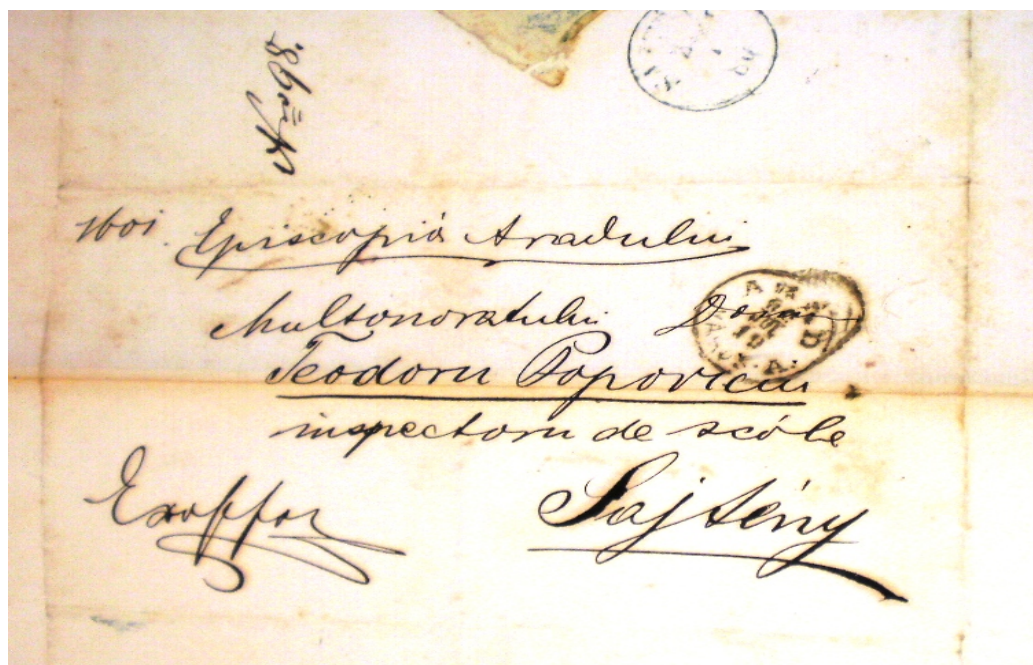 1601. Episcopiá Aradului
Multonoratului Domn
Teodoru Popoviciu
inspectoru de scóle
Exoffo
Sajtény